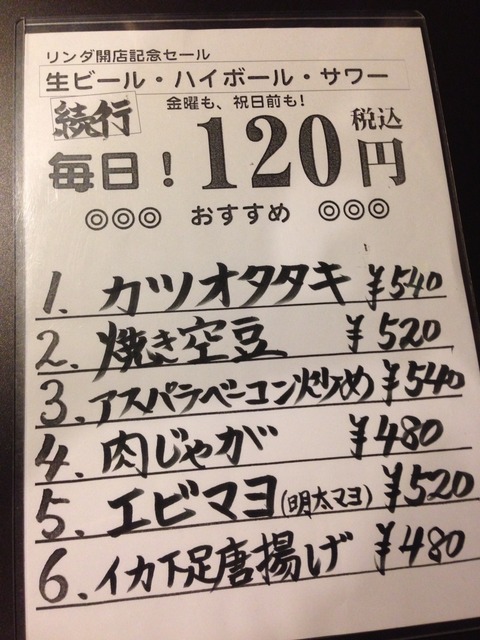 リンダ開店記念セール
生ビール・ハイボール・サワー
続行 金曜も、祝日前も!
毎日! 120円 税込
◎◎◎ おすすめ ◎◎◎
1. カツオタタキ ¥540
2. 焼き空豆 ¥520
3. アスパラベーコン炒め ¥540
4. 肉じゃが ¥480
5. エビマヨ(明太マヨ) ¥520
6. イカ下足唐揚げ ¥480